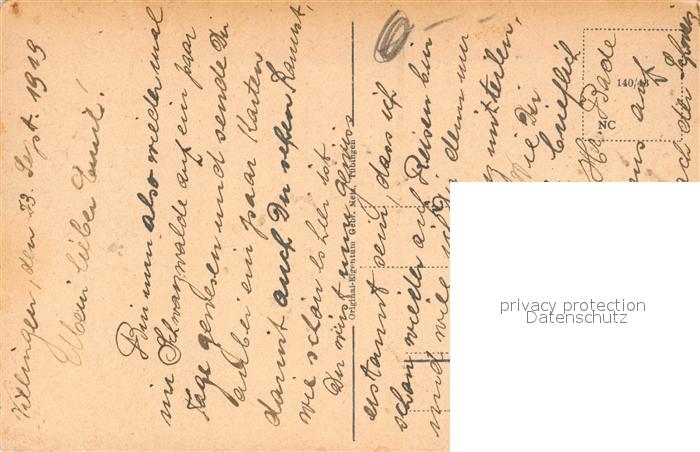 Villingen, den 23. Sept. 1919
Mein lieber
Bin nun also wieder mal
im Schwarzwalde auf ein paar
Tage gewesen und sende Dir
anbei ein paar Karten
damit auch Du sehen kannst,
wie schön es hier ist.
Du wirst nun gewiss
erstaunt sein, dass ich
schon wieder auf Reisen bin
und will ich Dir denn nur
mitteilen,
wie Dir
brieflich
Bade
auf
Original-Eigentum Gebr. Metz, Tübingen
140/48
NC
privacy protection
Datenschutz